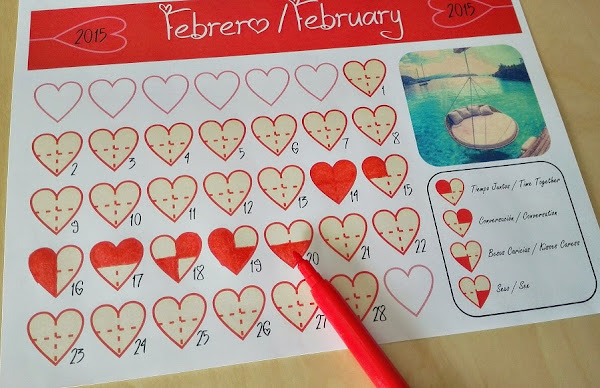 2015
Febrero /February
2015
1
2 3 4 5 6 7 8
9 10 11 12 13 14 15
16 17 18 19 20 21 22
23 24 25 26 27 28
Tiempo Juntos / Time Together
Conversación / Conversation
Besos Caricias / Kisses Caress
Sexo / Sex